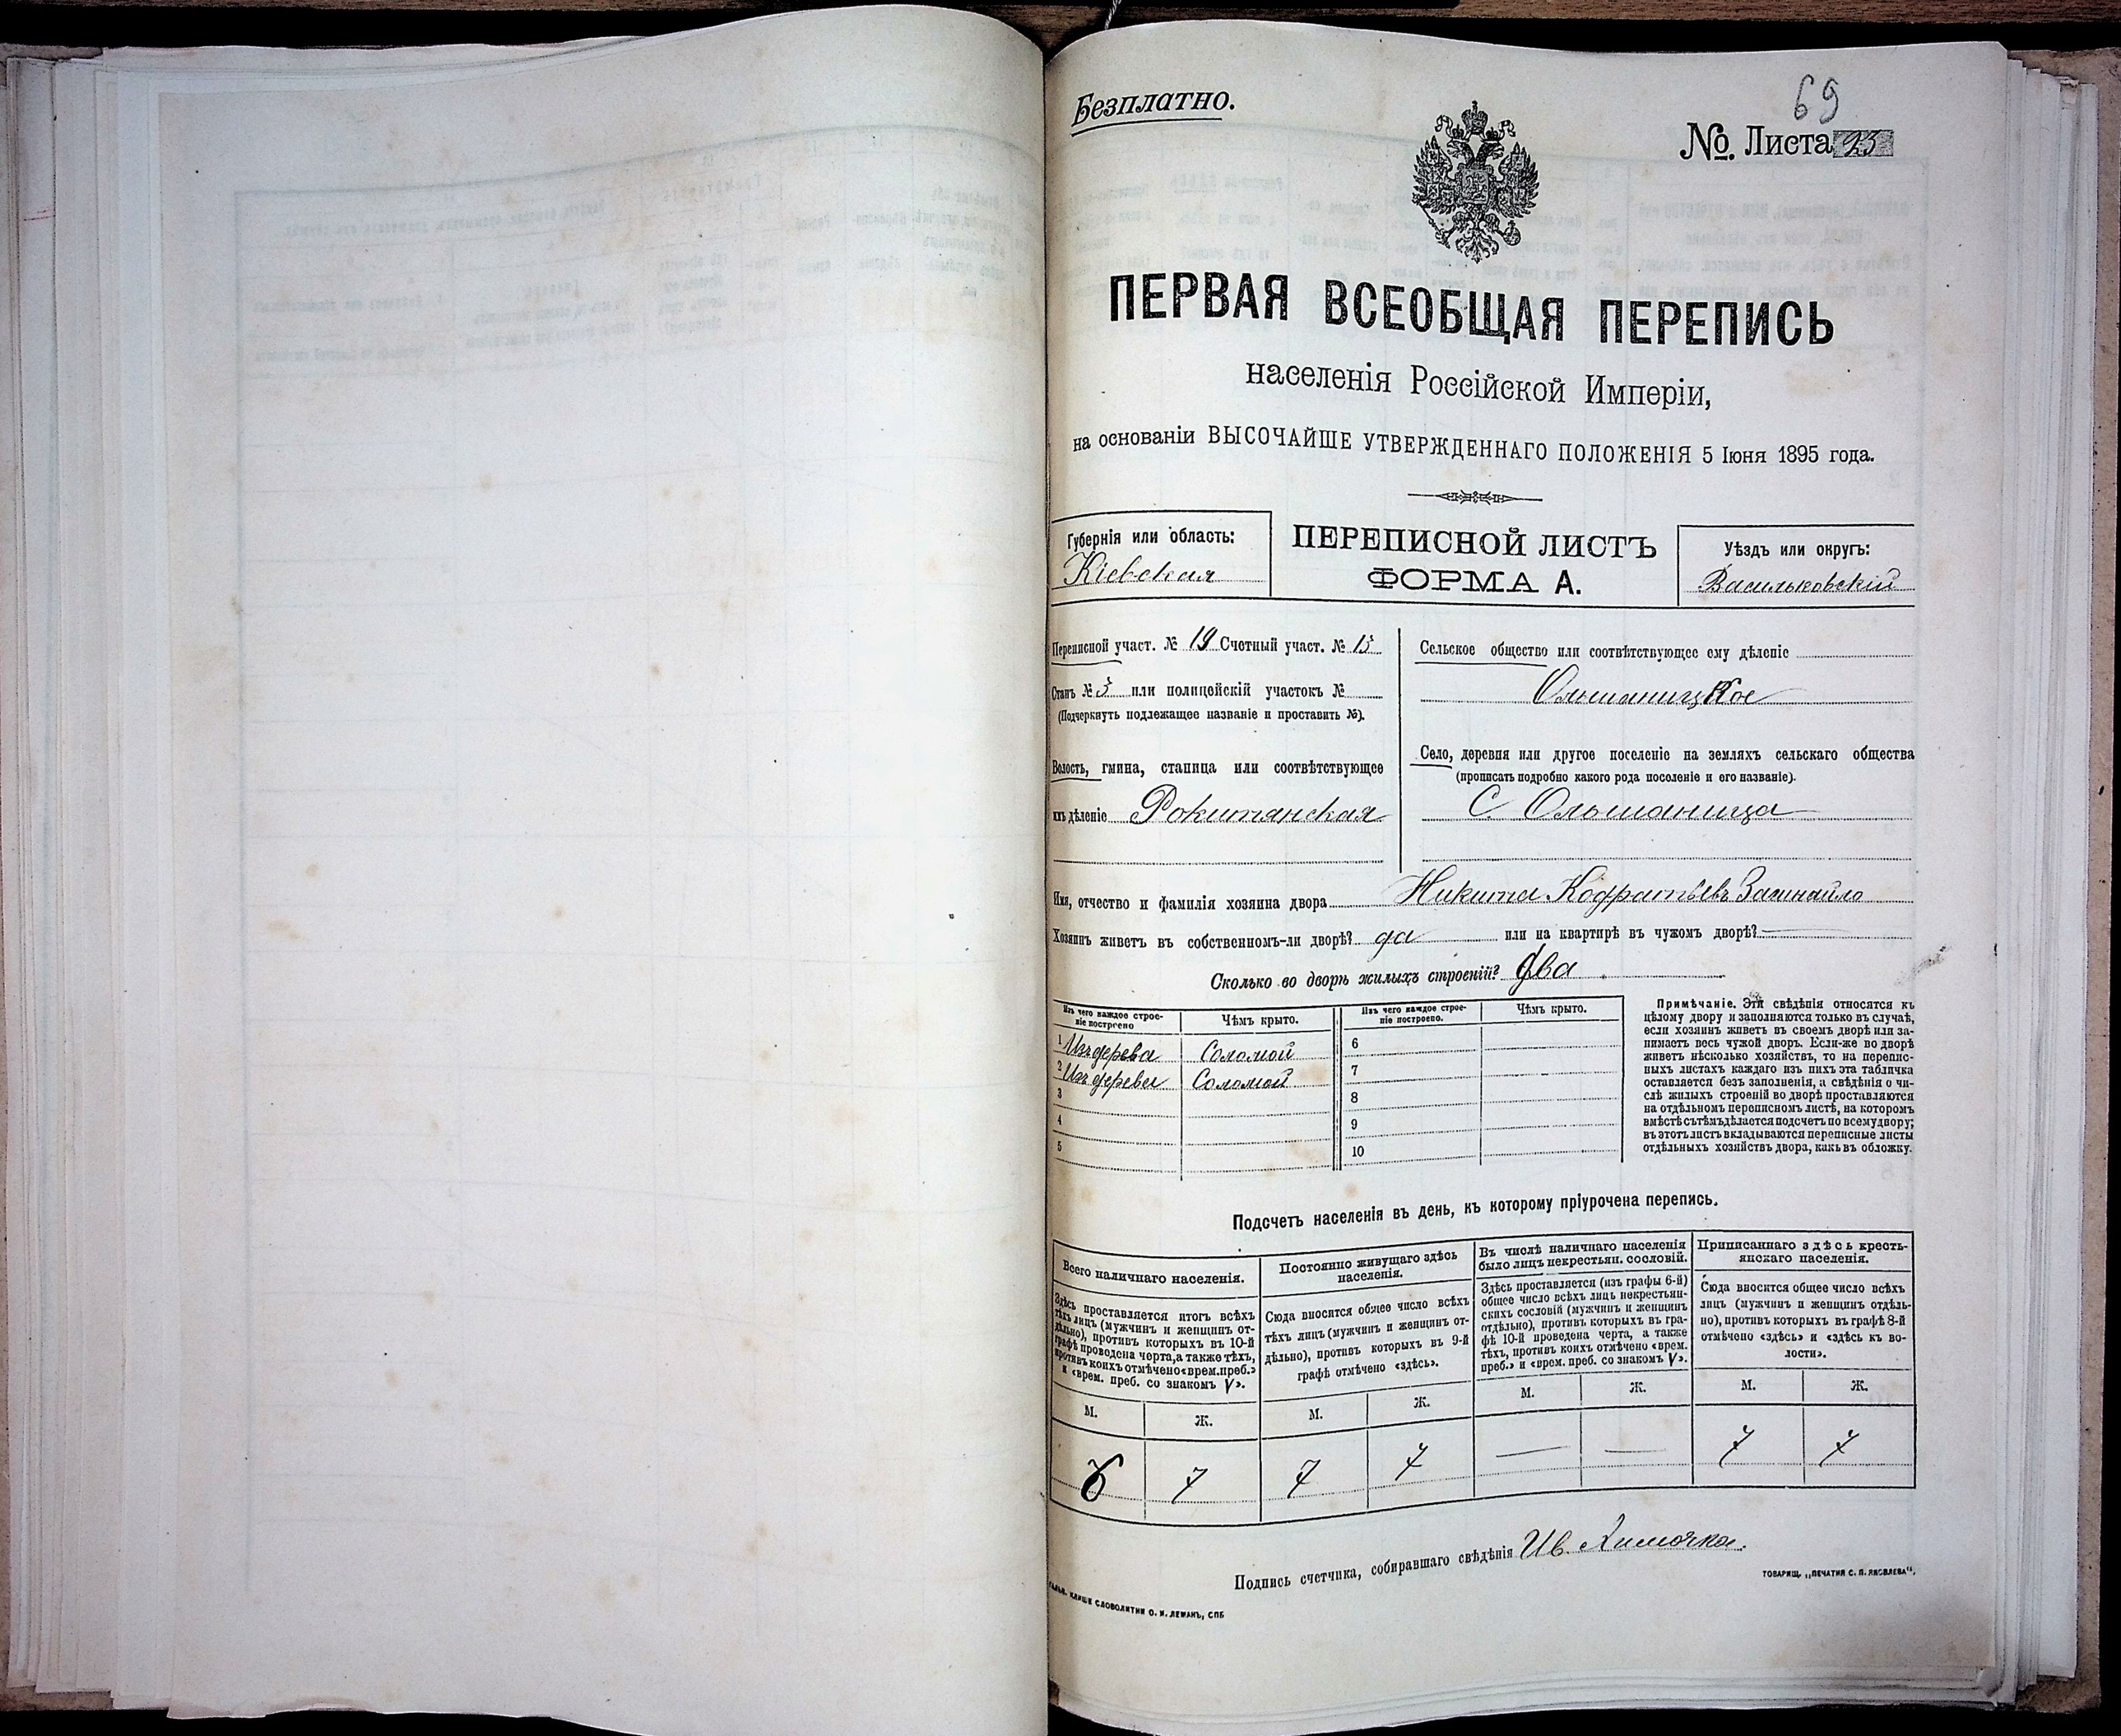 Безплатно.
69
№. Листа 23
ПЕРВАЯ ВСЕОБЩАЯ ПЕРЕПИСЬ
населенія Россійской Имперіи,
на основаніи ВЫСОЧАЙШЕ УТВЕРЖДЕННАГО ПОЛОЖЕНІЯ 5 Іюня 1895 года.
Губернія или область:
Кіевская
ПЕРЕПИСНОЙ ЛИСТЪ
ФОРМА А.
Уѣздъ или округъ:
Васильковскій
Переписной участ. № 19 Счетный участ. № 15
Станъ № 3 или полицейскій участокъ №
(Подчеркнуть подлежащее названіе и проставить №).
Волость, гмина, станица или соотвѣтствующее
имъ дѣленіе Рокитянская
Сельское общество или соотвѣтствующее ему дѣленіе
Ольшаницкое
Село, деревня или другое поселеніе на земляхъ сельскаго общества
(прописать подробно какого рода поселеніе и его названіе).
С. Ольшаница
Имя, отчество и фамилія хозяина двора Никита Кодратьевъ
Хозяинъ живетъ въ собственномъ-ли дворѣ? да или на квартирѣ въ чужомъ дворѣ?
Сколько во дворѣ жилыхъ строеній? Два
Изъ чего каждое строе-
ніе построено
Чѣмъ крыто.
1 Изъ дерева Соломой
2 Изъ дерева Соломой
3
4
5
Изъ чего каждое строе-
ніе построено.
Чѣмъ крыто.
6
7
8
9
10
Примѣчаніе. Эти свѣдѣнія относятся къ
цѣлому двору и заполняются только въ случаѣ,
если хозяинъ живетъ въ своемъ дворѣ или за-
нимаетъ весь чужой дворъ. Если-же во дворѣ
живетъ нѣсколько хозяйствъ, то на перепис-
ныхъ листахъ каждаго изъ нихъ эта табличка
оставляется безъ заполненія, а свѣдѣнія о чи-
слѣ жилыхъ строеній во дворѣ проставляются
на отдѣльномъ переписномъ листѣ, на которомъ
вмѣстѣ съ тѣмъ дѣлается подсчетъ по всему двору;
въ этотъ листъ вкладываются переписные листы
отдѣльныхъ хозяйствъ двора, какъ въ обложку.
Подсчетъ населенія въ день, къ которому пріурочена перепись.
Всего наличнаго населенія.
Здѣсь проставляется итогъ всѣхъ
тѣхъ лицъ (мужчинъ и женщинъ от-
дѣльно), противъ которыхъ въ 10-й
графѣ проведена черта, а также тѣхъ,
противъ коихъ отмѣчено «врем. преб.»
и «врем. преб. со знакомъ V».
М. Ж.
6 7
Постоянно живущаго здѣсь
населенія.
Сюда вносится общее число всѣхъ
тѣхъ лицъ (мужчинъ и женщинъ от-
дѣльно), противъ которыхъ въ 9-й
графѣ отмѣчено «здѣсь».
М. Ж.
7 7
Въ числѣ наличнаго населенія
было лицъ некрестьян. сословій.
Здѣсь проставляется (изъ графы 6-й)
общее число всѣхъ лицъ некрестьян-
скихъ сословій (мужчинъ и женщинъ
отдѣльно), противъ которыхъ въ гра-
фѣ 10-й проведена черта, а также
тѣхъ, противъ коихъ отмѣчено «врем.
преб.» и «врем. преб. со знакомъ V».
М. Ж.
— —
Приписаннаго здѣсь кресть-
янскаго населенія.
Сюда вносится общее число всѣхъ
лицъ (мужчинъ и женщинъ отдѣль-
но), противъ которыхъ въ графѣ 8-й
отмѣчено «здѣсь» и «здѣсь къ во-
лости».
М. Ж.
7 7
Подпись счетчика, собиравшаго свѣдѣнія Ив. Химочка.
КЛИШЕ СЛОВОЛИТНИ О. И. ЛЕМАНЪ, СПБ
ТОВАРИЩ. „ПЕЧАТНЯ С. П. ЯКОВЛЕВА“.